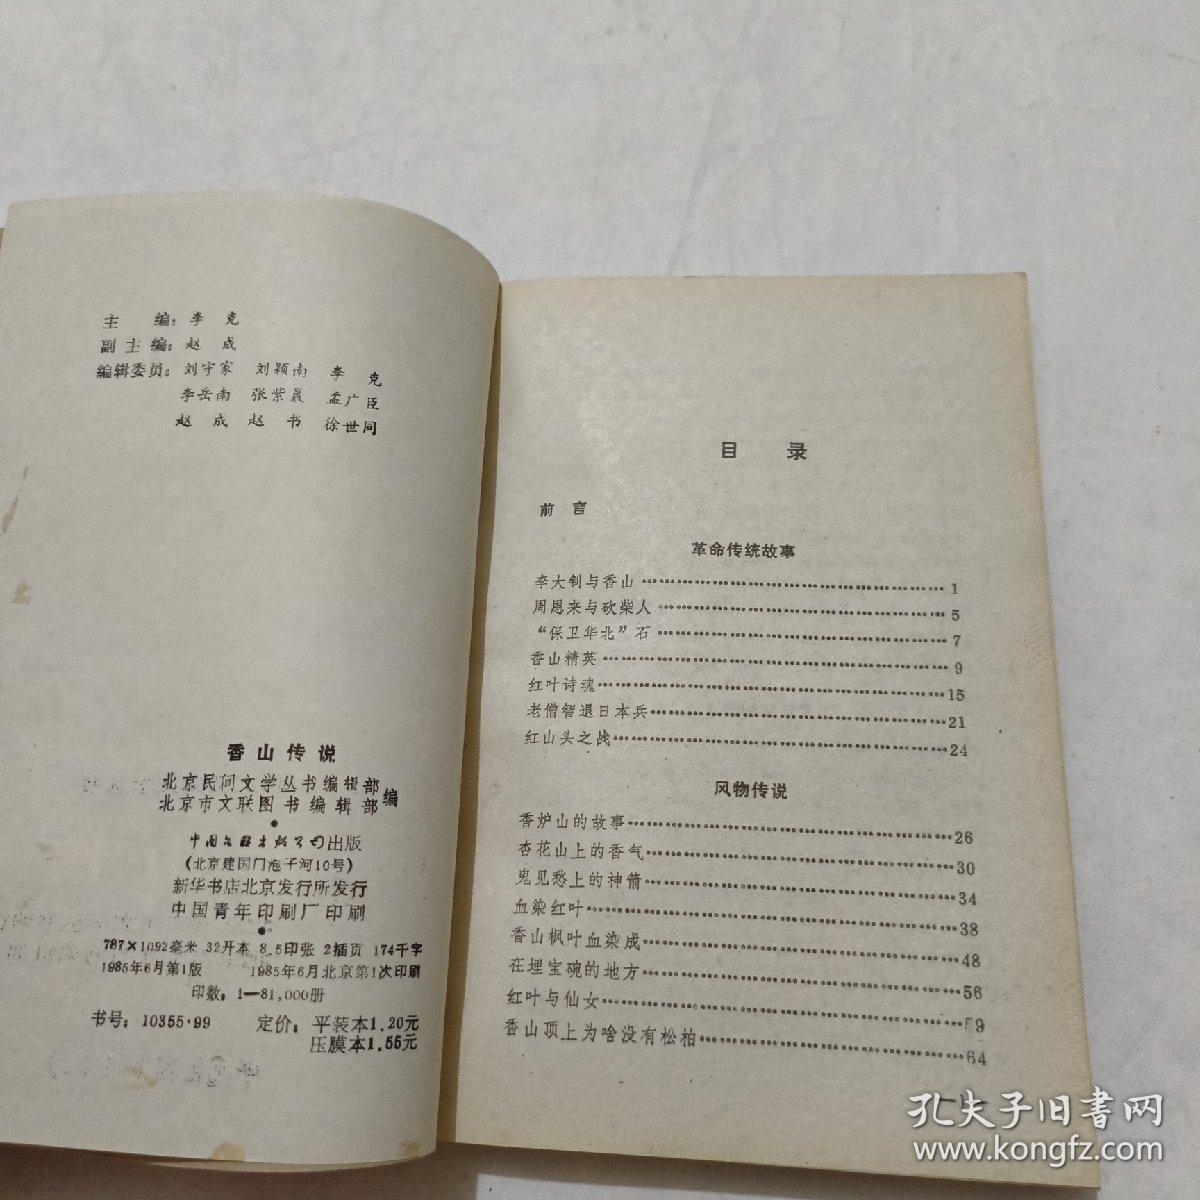 主 编：李 克
副主编：赵 成
编辑委员：刘守家 刘颖南 李 克
李岳南 张紫晨 孟广臣
赵 成 赵 书 徐世同
香山传说
北京民间文学丛书编辑部
北京市文联图书编辑部 编
中国文联出版公司出版
(北京建国门泡子河10号)
新华书店北京发行所发行
中国青年印刷厂印刷
787×1092毫米 32开本 8.5印张 2插页 174千字
1985年6月第1版 1985年6月北京第1次印刷
印数：1—81,000册
书号：10355·99 定价：平装本1.20元
压膜本1.55元
目 录
前 言
革命传统故事
李大钊与香山……1
周恩来与砍柴人……5
“保卫华北”石……7
香山精英……9
红叶诗魂……15
老僧智退日本兵……21
红山头之战……24
风物传说
香炉山的故事……26
杏花山上的香气……30
鬼见愁上的神箭……34
血染红叶……38
香山枫叶血染成……48
在埋宝碗的地方……56
红叶与仙女……59
香山顶上为啥没有松柏……64
—1—
孔夫子旧书网
www.kongfz.com